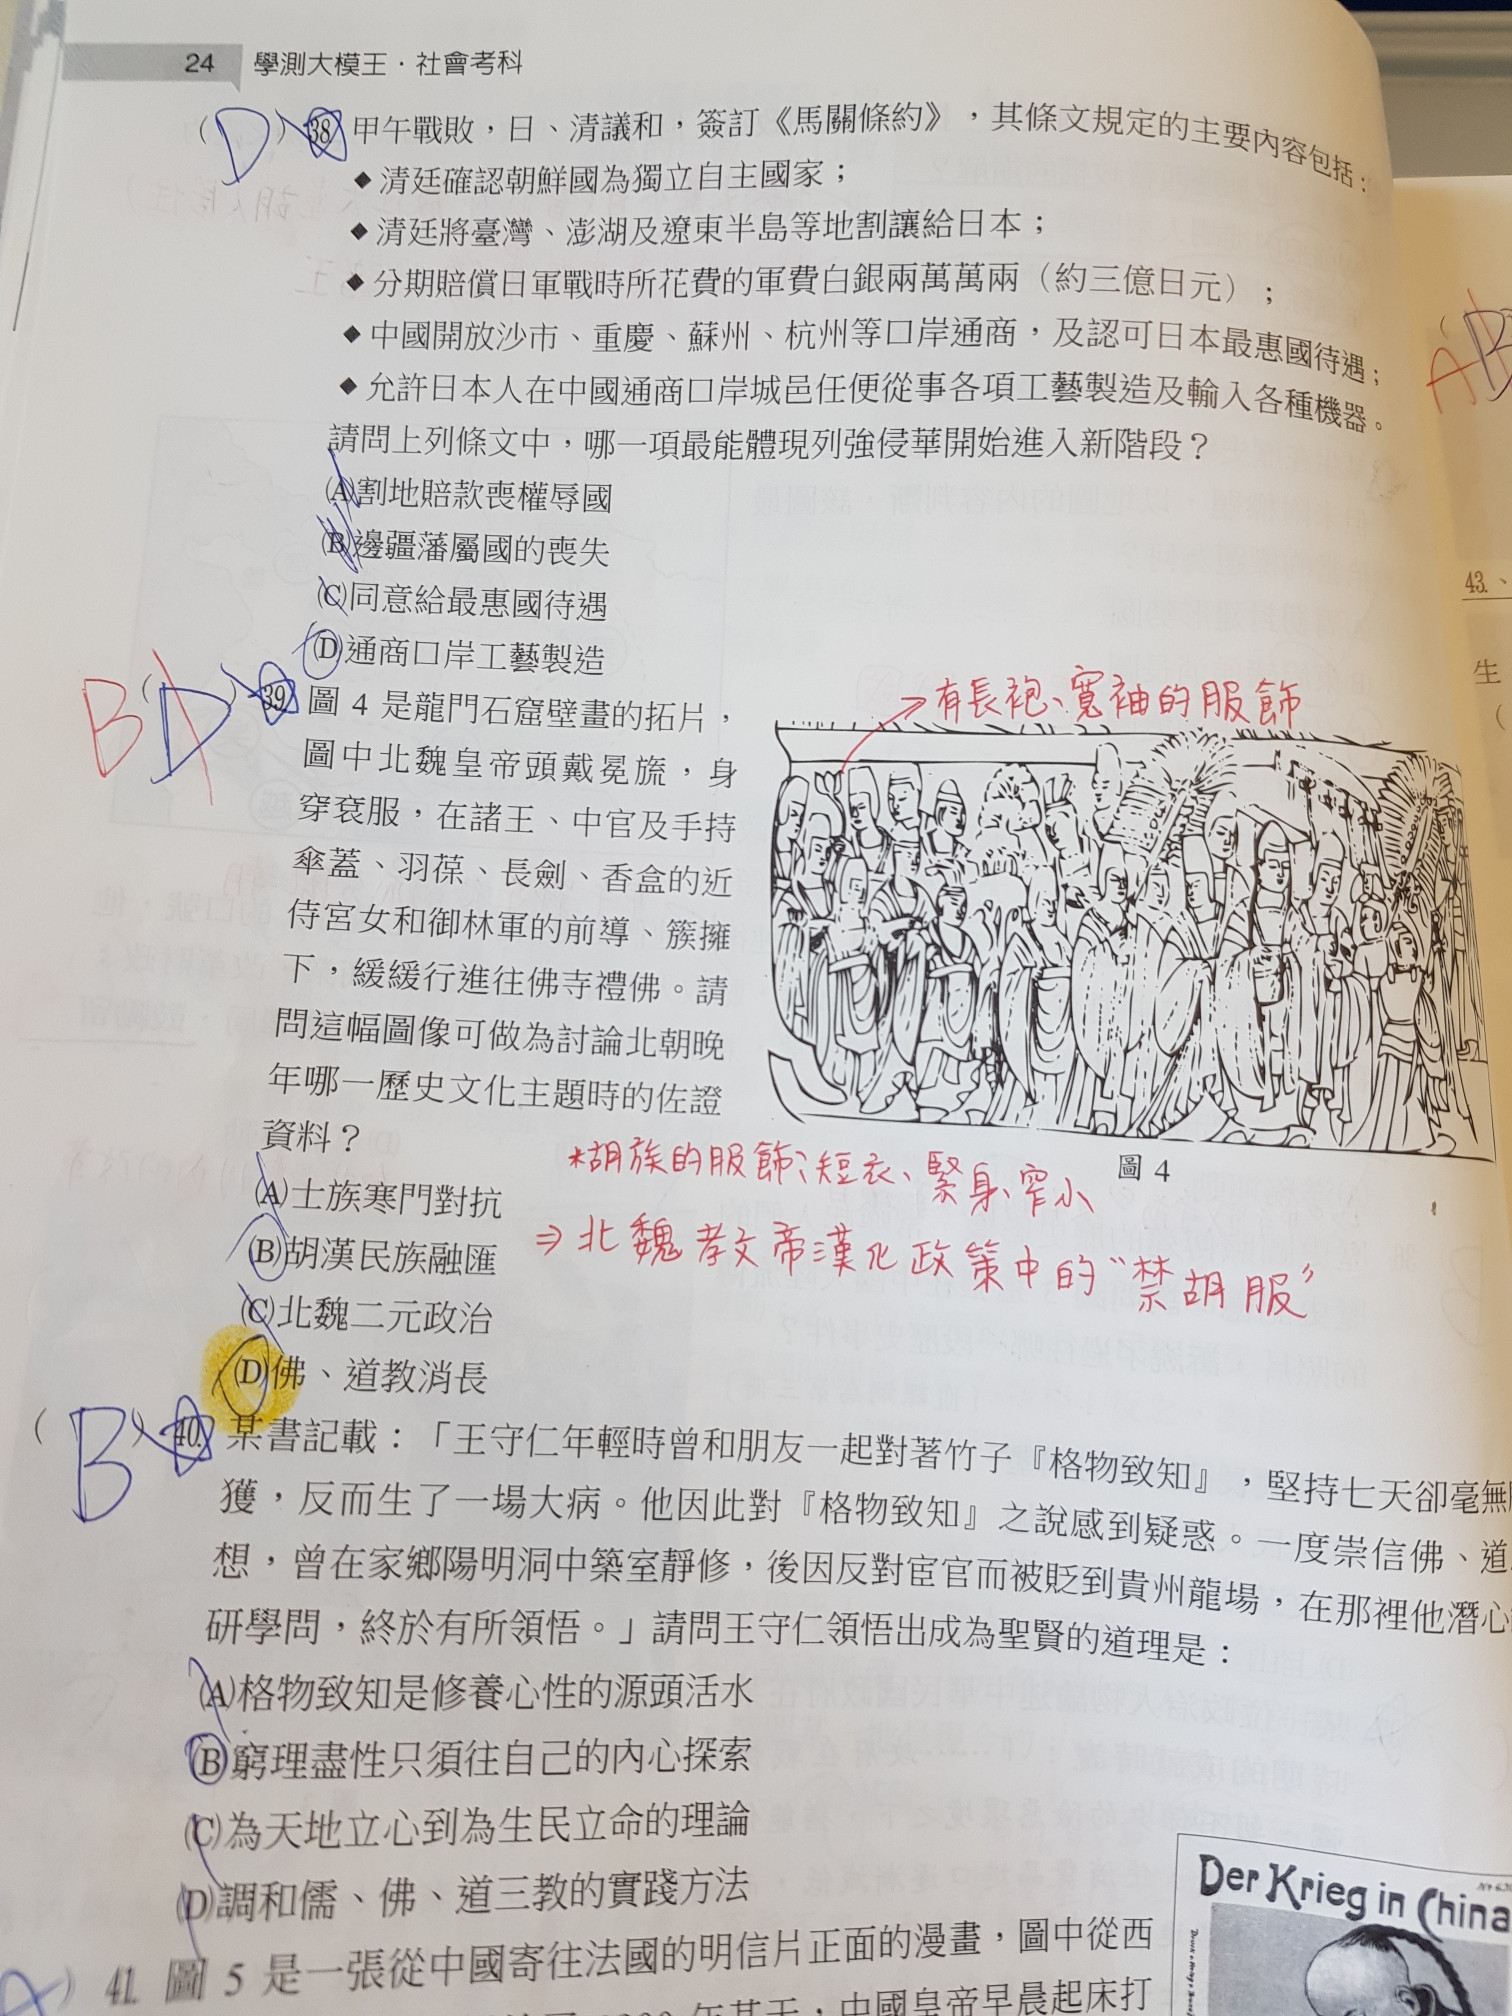 24 學測大模王.社會考科
(D) 38. 甲午戰敗,日、清議和,簽訂《馬關條約》,其條文規定的主要內容包括:
◆清廷確認朝鮮國為獨立自主國家;
◆清廷將臺灣、澎湖及遼東半島等地割讓給日本;
◆分期賠償日軍戰時所花費的軍費白銀兩萬萬兩(約三億日元);
◆中國開放沙市、重慶、蘇州、杭州等口岸通商,及認可日本最惠國待遇;
◆允許日本人在中國通商口岸城邑任便從事各項工藝製造及輸入各種機器。
請問上列條文中,哪一項最能體現列強侵華開始進入新階段?
(A)割地賠款喪權辱國
(B)邊疆藩屬國的喪失
(C)同意給最惠國待遇
(D)通商口岸工藝製造
B (D) 39. 圖 4 是龍門石窟壁畫的拓片,
圖中北魏皇帝頭戴冕旒,身
穿袞服,在諸王、中官及手持
傘蓋、羽葆、長劍、香盒的近
侍宮女和御林軍的前導、簇擁
下,緩緩行進往佛寺禮佛。請
問這幅圖像可做為討論北朝晚
年哪一歷史文化主題時的佐證
資料?
→有長袍、寬袖的服飾
圖 4
*胡族的服飾:短衣、緊身、窄小
⇒北魏孝文帝漢化政策中的"禁胡服"
(A)士族寒門對抗
(B)胡漢民族融匯
(C)北魏二元政治
(D)佛、道教消長
(B) 40. 某書記載:「王守仁年輕時曾和朋友一起對著竹子『格物致知』,堅持七天卻毫無
獲,反而生了一場大病。他因此對『格物致知』之說感到疑惑。一度崇信佛、道
想,曾在家鄉陽明洞中築室靜修,後因反對宦官而被貶到貴州龍場,在那裡他潛心
研學問,終於有所領悟。」請問王守仁領悟出成為聖賢的道理是:
(A)格物致知是修養心性的源頭活水
(B)窮理盡性只須往自己的內心探索
(C)為天地立心到為生民立命的理論
(D)調和儒、佛、道三教的實踐方法
A) 41. 圖 5 是一張從中國寄往法國的明信片正面的漫畫,圖中從西
年某天,中國皇帝早晨起床打
Der Krieg in China
A B
43.、
生